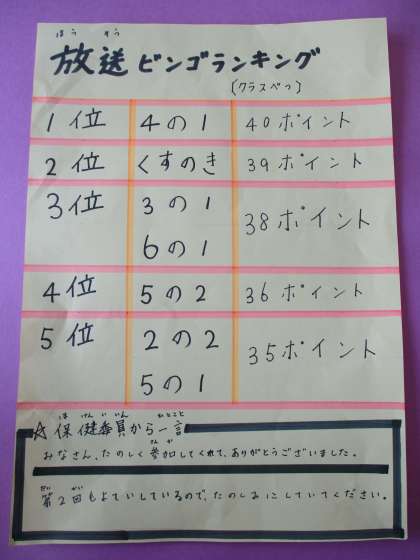 ほうそう
放送ビンゴランキング
(クラスべつ)
1位 4の1 40ポイント
2位 くすのき 39ポイント
3位 3の1 38ポイント
6の1
4位 5の2 36ポイント
5位 2の2 35ポイント
5の1
ほけんいいん ひとこと
☆保健委員から一言
さんか
みなさん、たのしく参加してくれて、ありがとうございました。
だい かい
第2回もよていしているので、たのしみにしていてください。